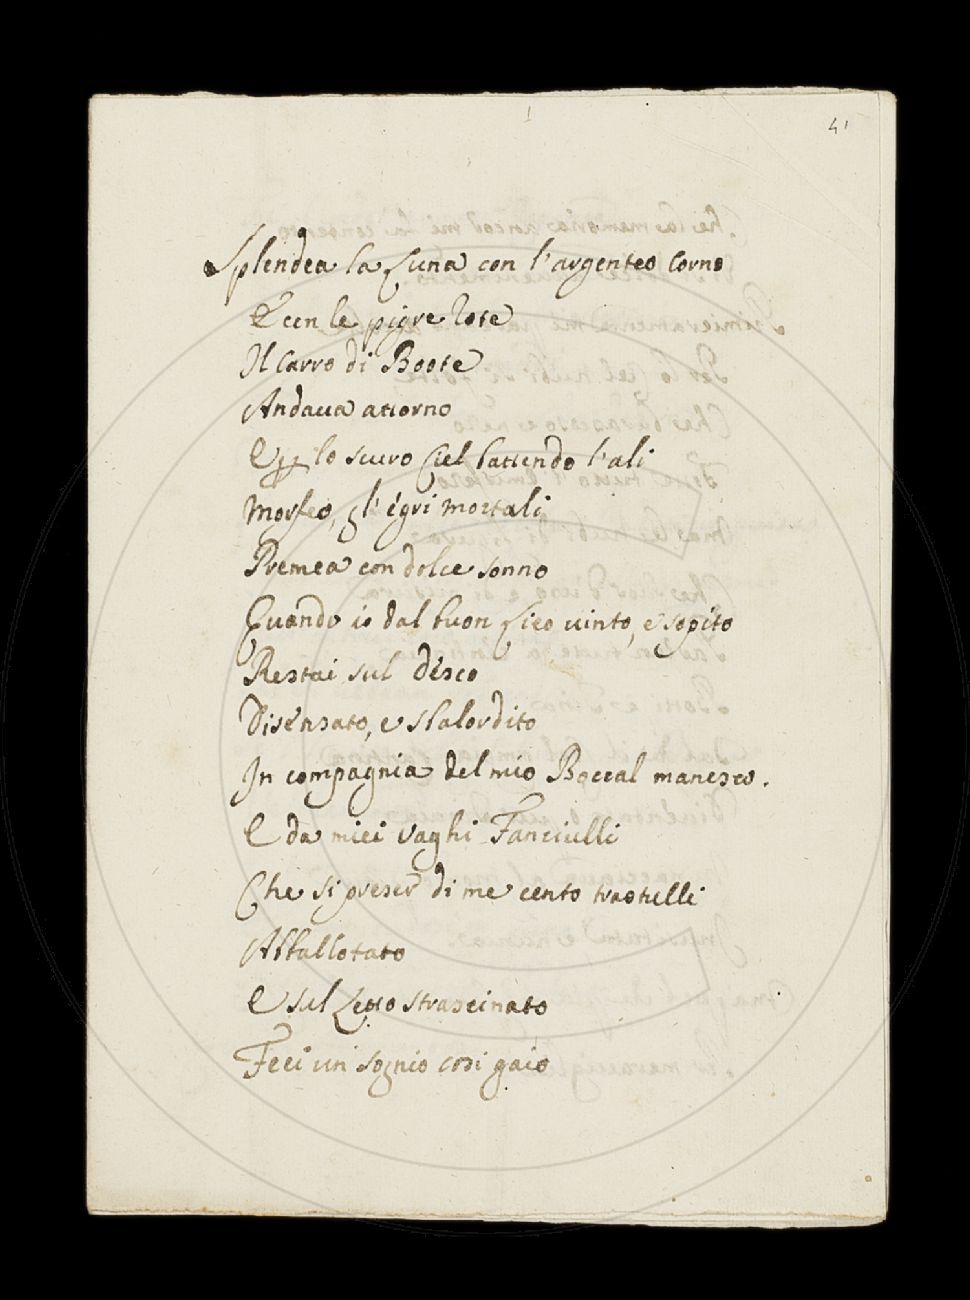 41
Splendea la Luna con l'argenteo Corno
E con le pigre rote
Il Carro di Boote
Andava attorno
E p lo scuro Ciel battendo l'ali
Morfeo, gl'égri mortali
Premea con dolce sonno
Quando io dal buon Lieo vinto, e sopito
Restai sul désco
Disénsato, e sbalordito
In compagnia del mio Boccal manesco.
E da miei vaghi Fanciulli
Che si preser di me cento trastulli
Abballotato
E sul Letto strascinato
Feci un sognio cosi gaio